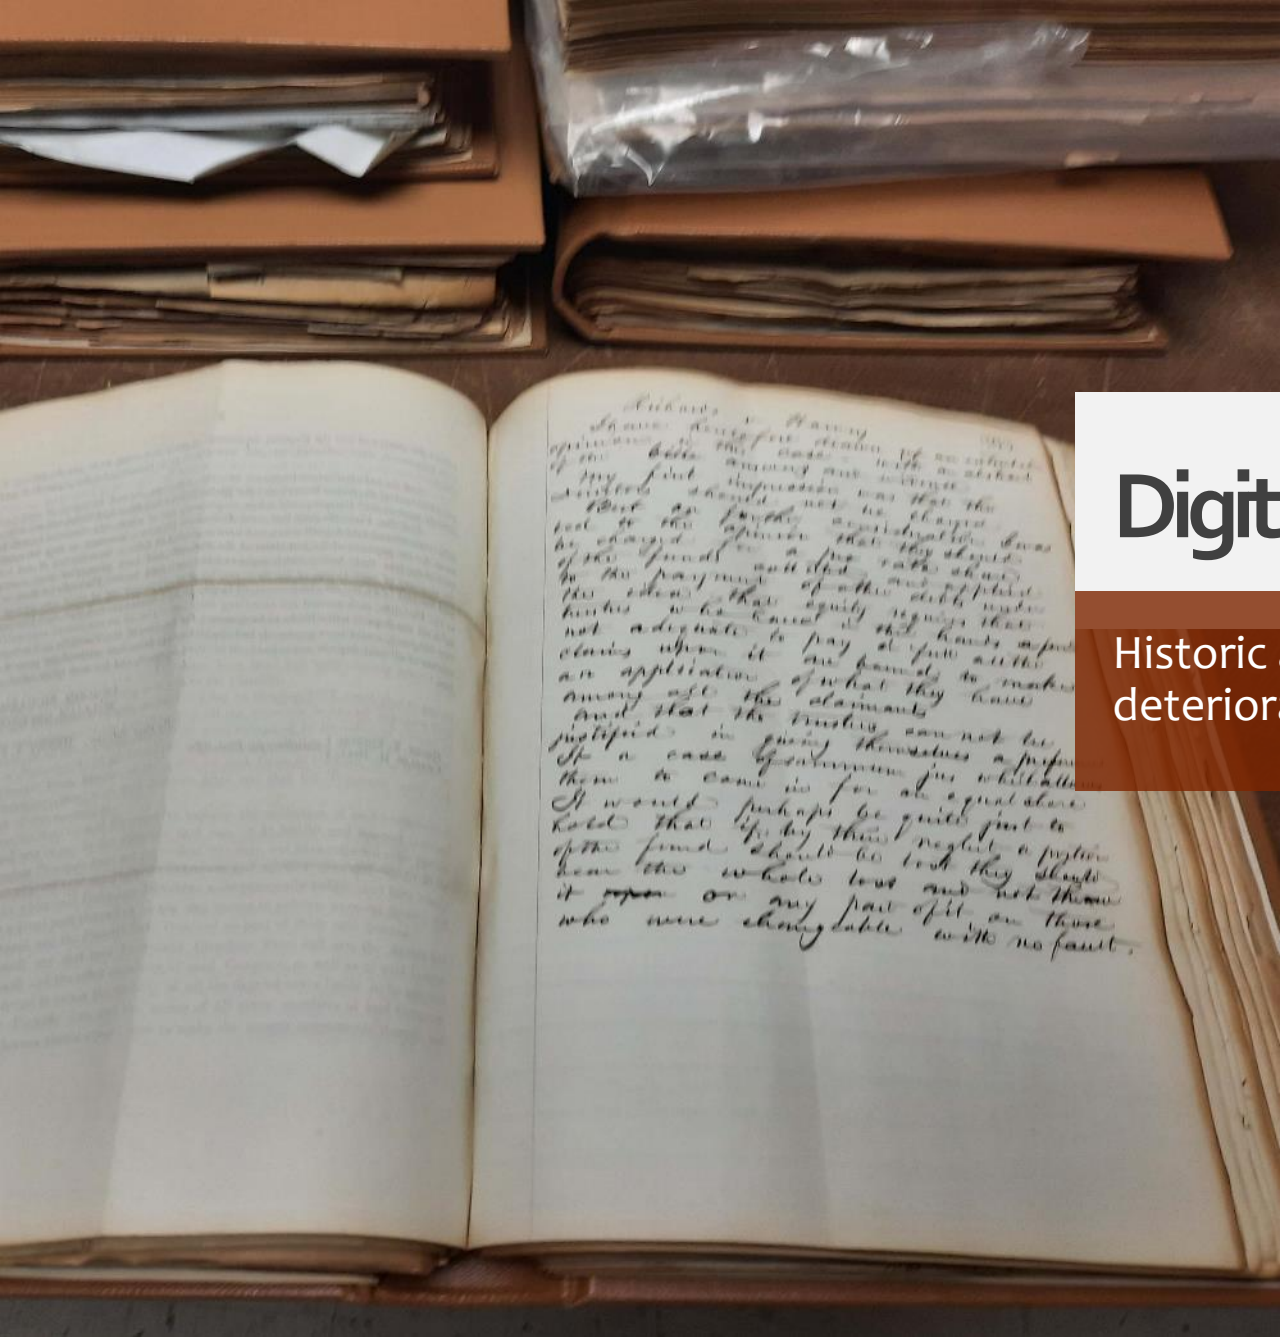 Richards v Harvey
I have heretofore drawn up an
opinion in this case - with an abstract
of the bill answer and evidence.
My first impression was that the
should not be charged
But on further consideration I was
led to the opinion that they should
be charged for a pro rata share
of the funds and applied
to the payment of other debts under
the idea that equity requires that
trustees who have in their hands a fund
not adequate to pay in full all the
claims upon it are bound to make
an application of what they have
among all the claimants
and that the trustees can not be
justified in giving themselves a
It a case
them to come in for an equal share
It would perhaps be quite just to
hold that if by their neglect a portion
of the fund should be lost they should
bear the whole loss and not throw
it or any part of it on those
who were chargeable with no fault.
Digit
Historic
deterior